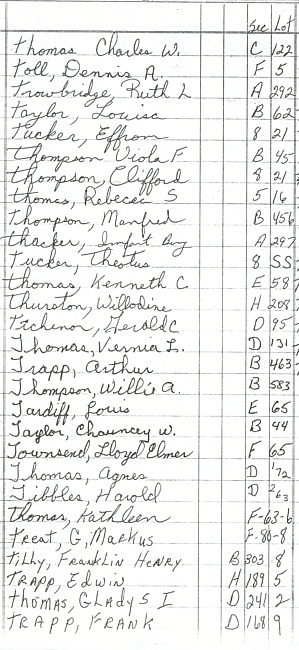 Sec Lot
Thomas Charles W. C 122
Toll, Dennis A. F 5
Trowbridge, Ruth L A 292
Taylor, Louise B 62
Tucker, Effrom 8 21
Thompson Viola F. B 45
Thompson, Clifford 8 21
Thomas, Rebecca S 5 16
Thompson, Manfred B 456
Thacker, Infant Boy A 297
Tucker, Theotus 8 SS
Thomas, Kenneth C E 58
Thurston, Willodine H 208
Tichenor, Gerald C D 95
Thomas, Vernia L. D 131
Trapp, Arthur B 463
Thompson, Willis A. B 583
Tardiff, Louis E 65
Taylor, Chauncey W. B 44
Townsend, Lloyd Elmer F 65
Thomas, Agnes D 172
Tibbles, Harold D 263
Thomas, Kathleen F-63-6
Treat, G, Markus F-80-8
Tilly, Franklin Henry B 303 8
Trapp, Edwin H 189 5
Thomas, Gladys I D 241 2
Trapp, Frank D 168 9